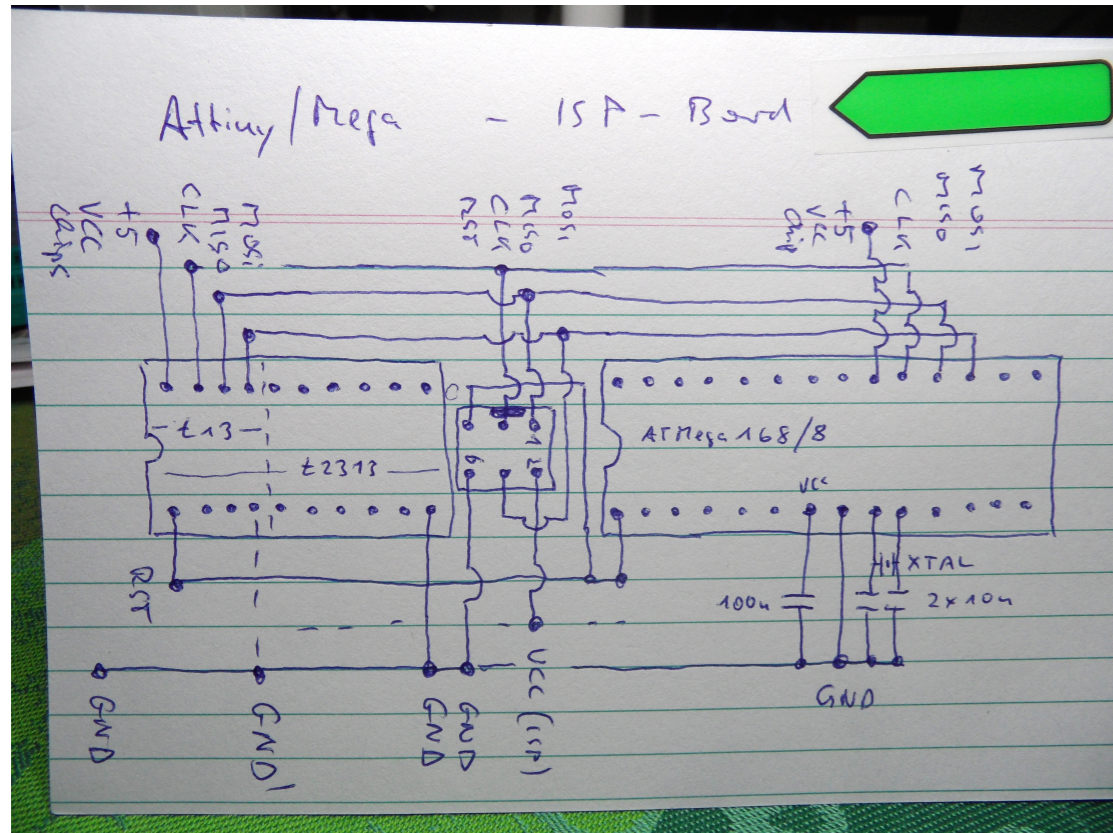 Attiny/Mega - ISP-Board
+5
VCC
CLK
MISO
MOSI
RST
CLK
MISO
MOSI
+5
VCC
Chip
CLK
MISO
MOSI
t13
t2313
1
6
2
ATMega 168/8
VCC
RST
XTAL
100n
2x10n
GND
GND'
GND
GND
VCC (ISP)
GND